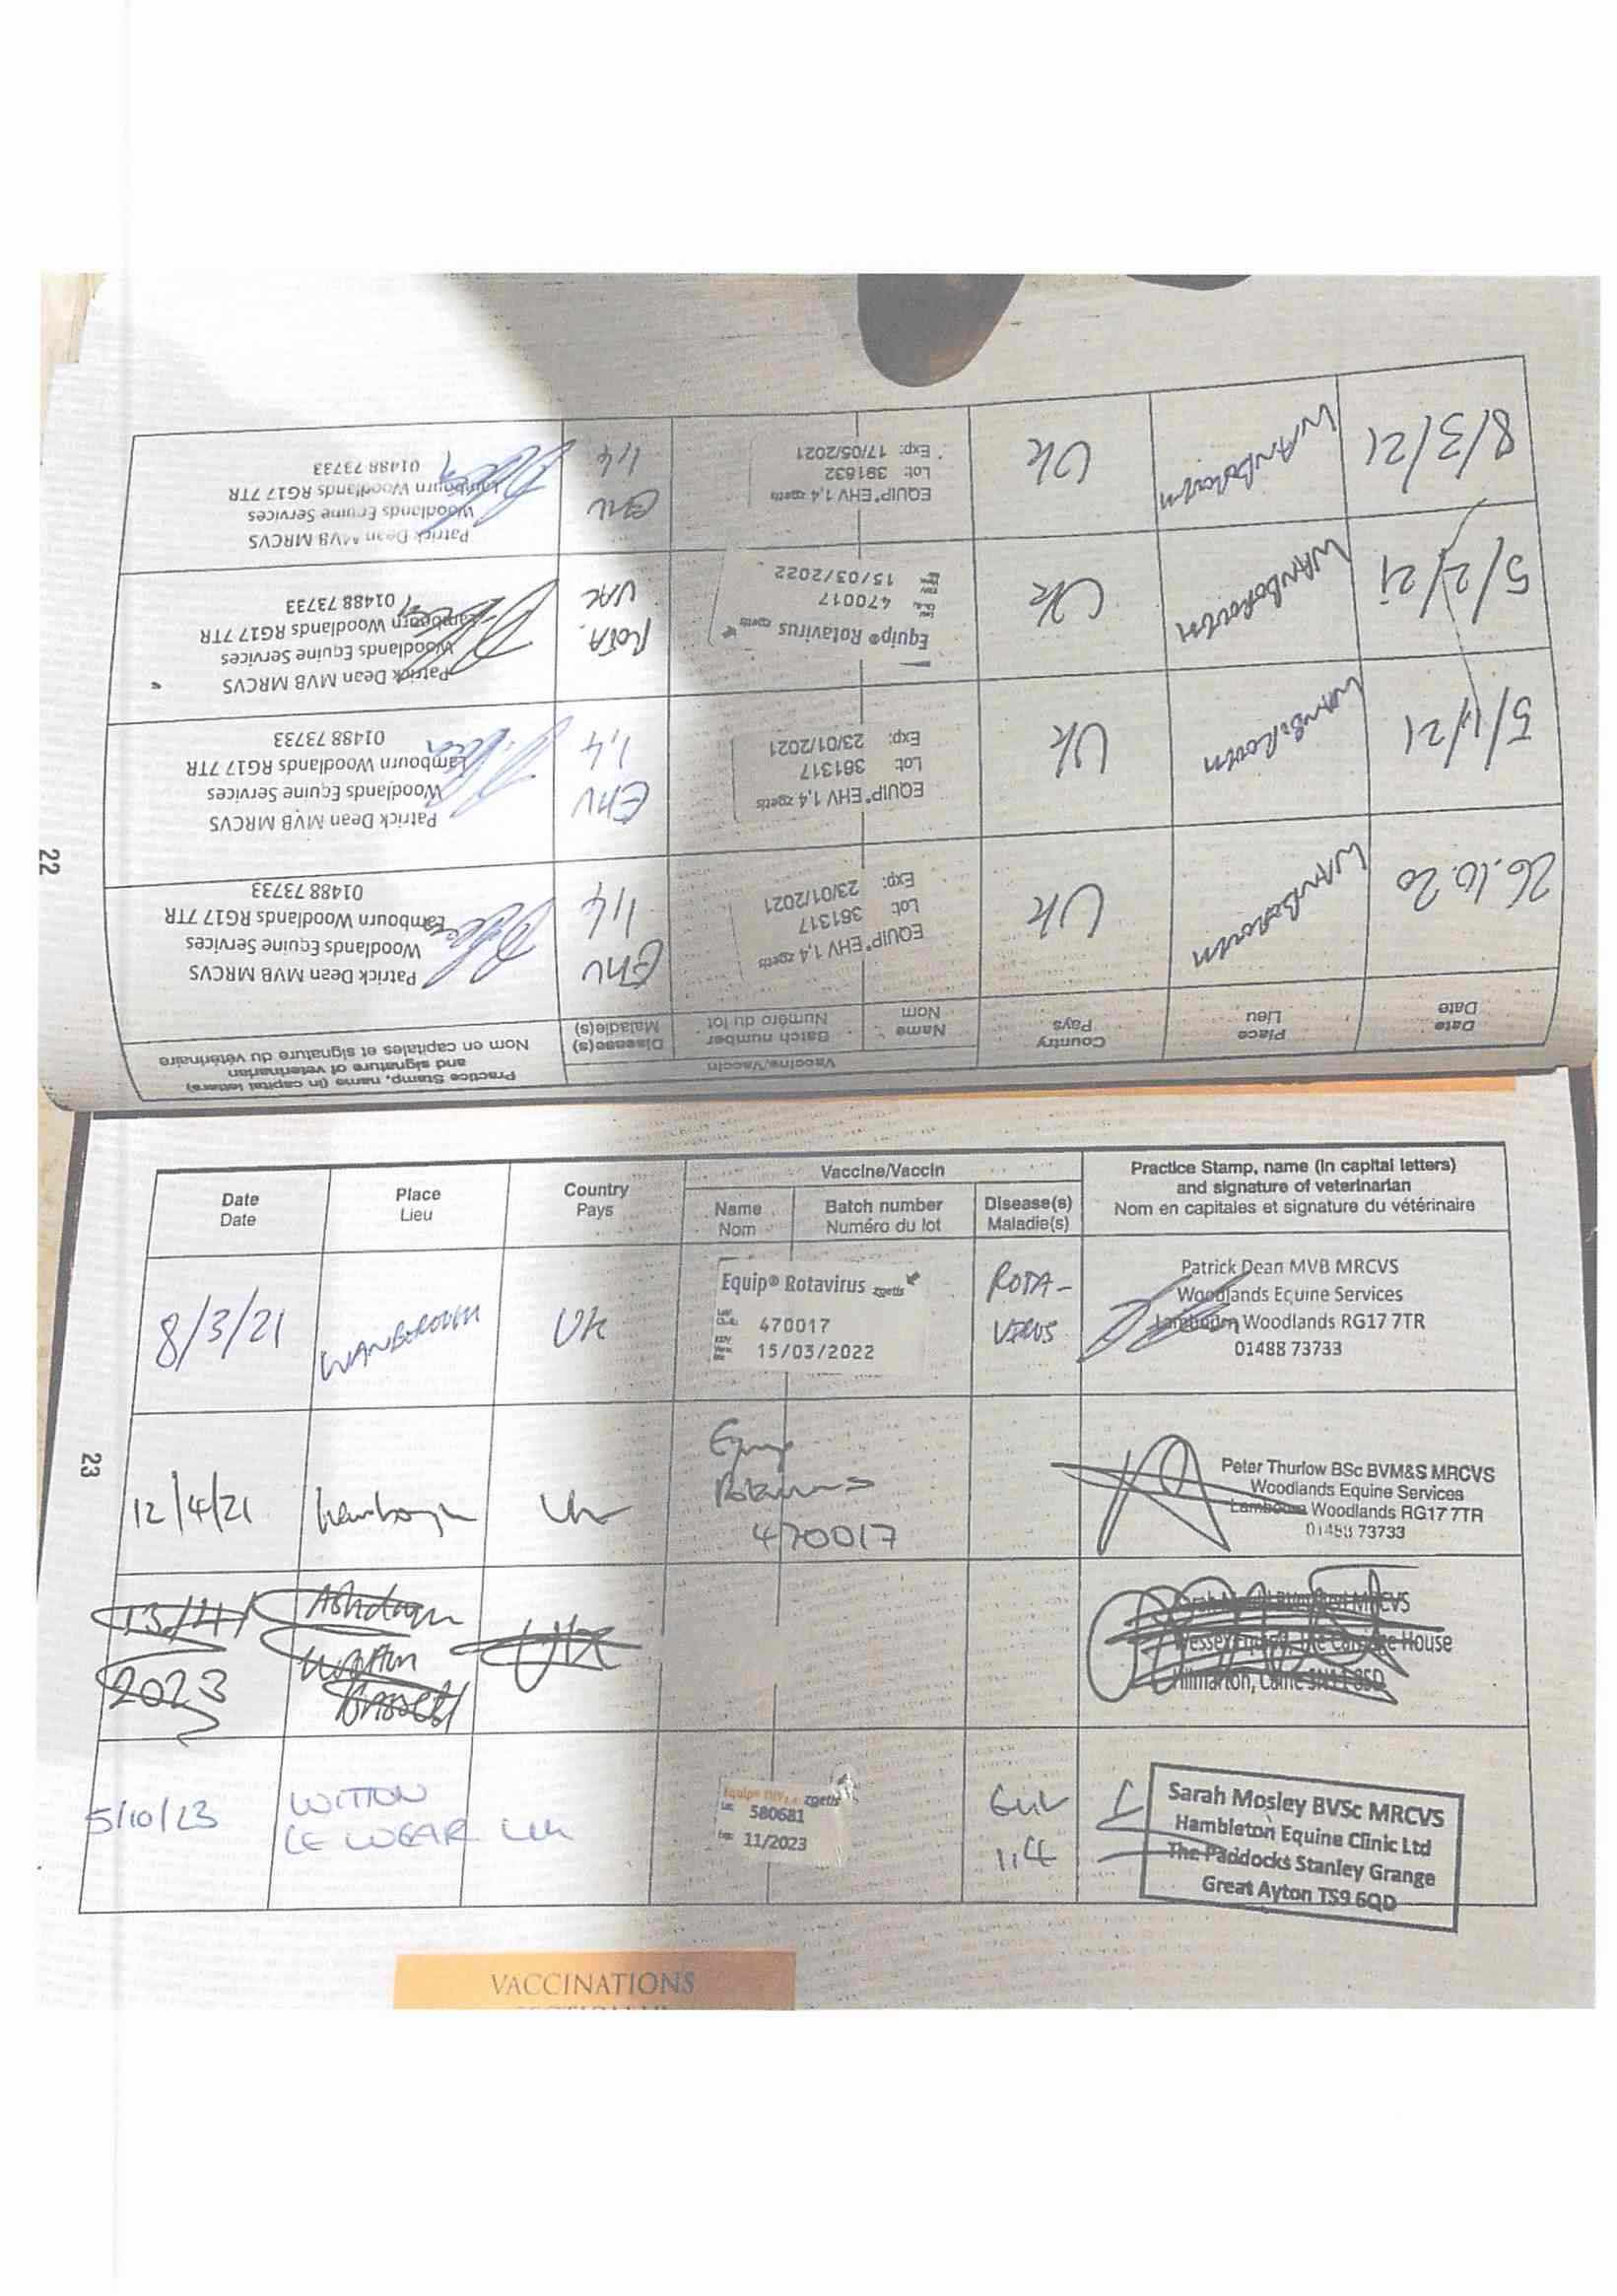 22
Date
Date
Place
Lieu
Country
Pays
Vaccine/Vaccin
Name
Nom
Batch number
Numéro du lot
Disease(s)
Maladie(s)
Practice Stamp, name (in capital letters)
and signature of veterinarian
Nom en capitales et signature du vétérinaire
26.10.20
WANBOROUGH
UK
EQUIP® EHV 1,4 zoetis
Lot: 381317
Exp: 23/01/2021
EHV
1,4
Patrick Dean MVB MRCVS
Woodlands Equine Services
Lambourn Woodlands RG17 7TR
01488 73733
5/1/21
WANBOROUGH
UK
EQUIP® EHV 1,4 zoetis
Lot: 381317
Exp: 23/01/2021
EHV
1,4
Patrick Dean MVB MRCVS
Woodlands Equine Services
Lambourn Woodlands RG17 7TR
01488 73733
5/2/21
WANBOROUGH
UK
Equip® Rotavirus zoetis
470017
15/03/2022
ROTA
Patrick Dean MVB MRCVS
Woodlands Equine Services
Lambourn Woodlands RG17 7TR
01488 73733
8/3/21
WANBOROUGH
UK
EQUIP® EHV 1,4 zoetis
Lot: 391832
Exp: 17/05/2021
EHV
1,4
Patrick Dean MVB MRCVS
Woodlands Equine Services
Lambourn Woodlands RG17 7TR
01488 73733
23
Date
Date
Place
Lieu
Country
Pays
Vaccine/Vaccin
Name
Nom
Batch number
Numéro du lot
Disease(s)
Maladie(s)
Practice Stamp, name (in capital letters)
and signature of veterinarian
Nom en capitales et signature du vétérinaire
8/3/21
WANBOROUGH
UK
Equip® Rotavirus zoetis
470017
15/03/2022
ROTA-
VIRUS
Patrick Dean MVB MRCVS
Woodlands Equine Services
Lambourn Woodlands RG17 7TR
01488 73733
12/4/21
Wanborough
UK
Equip
Rotavirus
470017
Peter Thurlow BSc BVM&S MRCVS
Woodlands Equine Services
Lambourn Woodlands RG17 7TR
01488 73733
2023
UK
MRCVS
House
5/10/23
WITTON
LE WEAR
UK
Equip® EHV 1,4 zoetis
580681
Exp: 11/2023
EHV
1,4
Sarah Mosley BVSc MRCVS
Hambleton Equine Clinic Ltd
The Paddocks Stanley Grange
Great Ayton TS9 6QD
VACCINATIONS